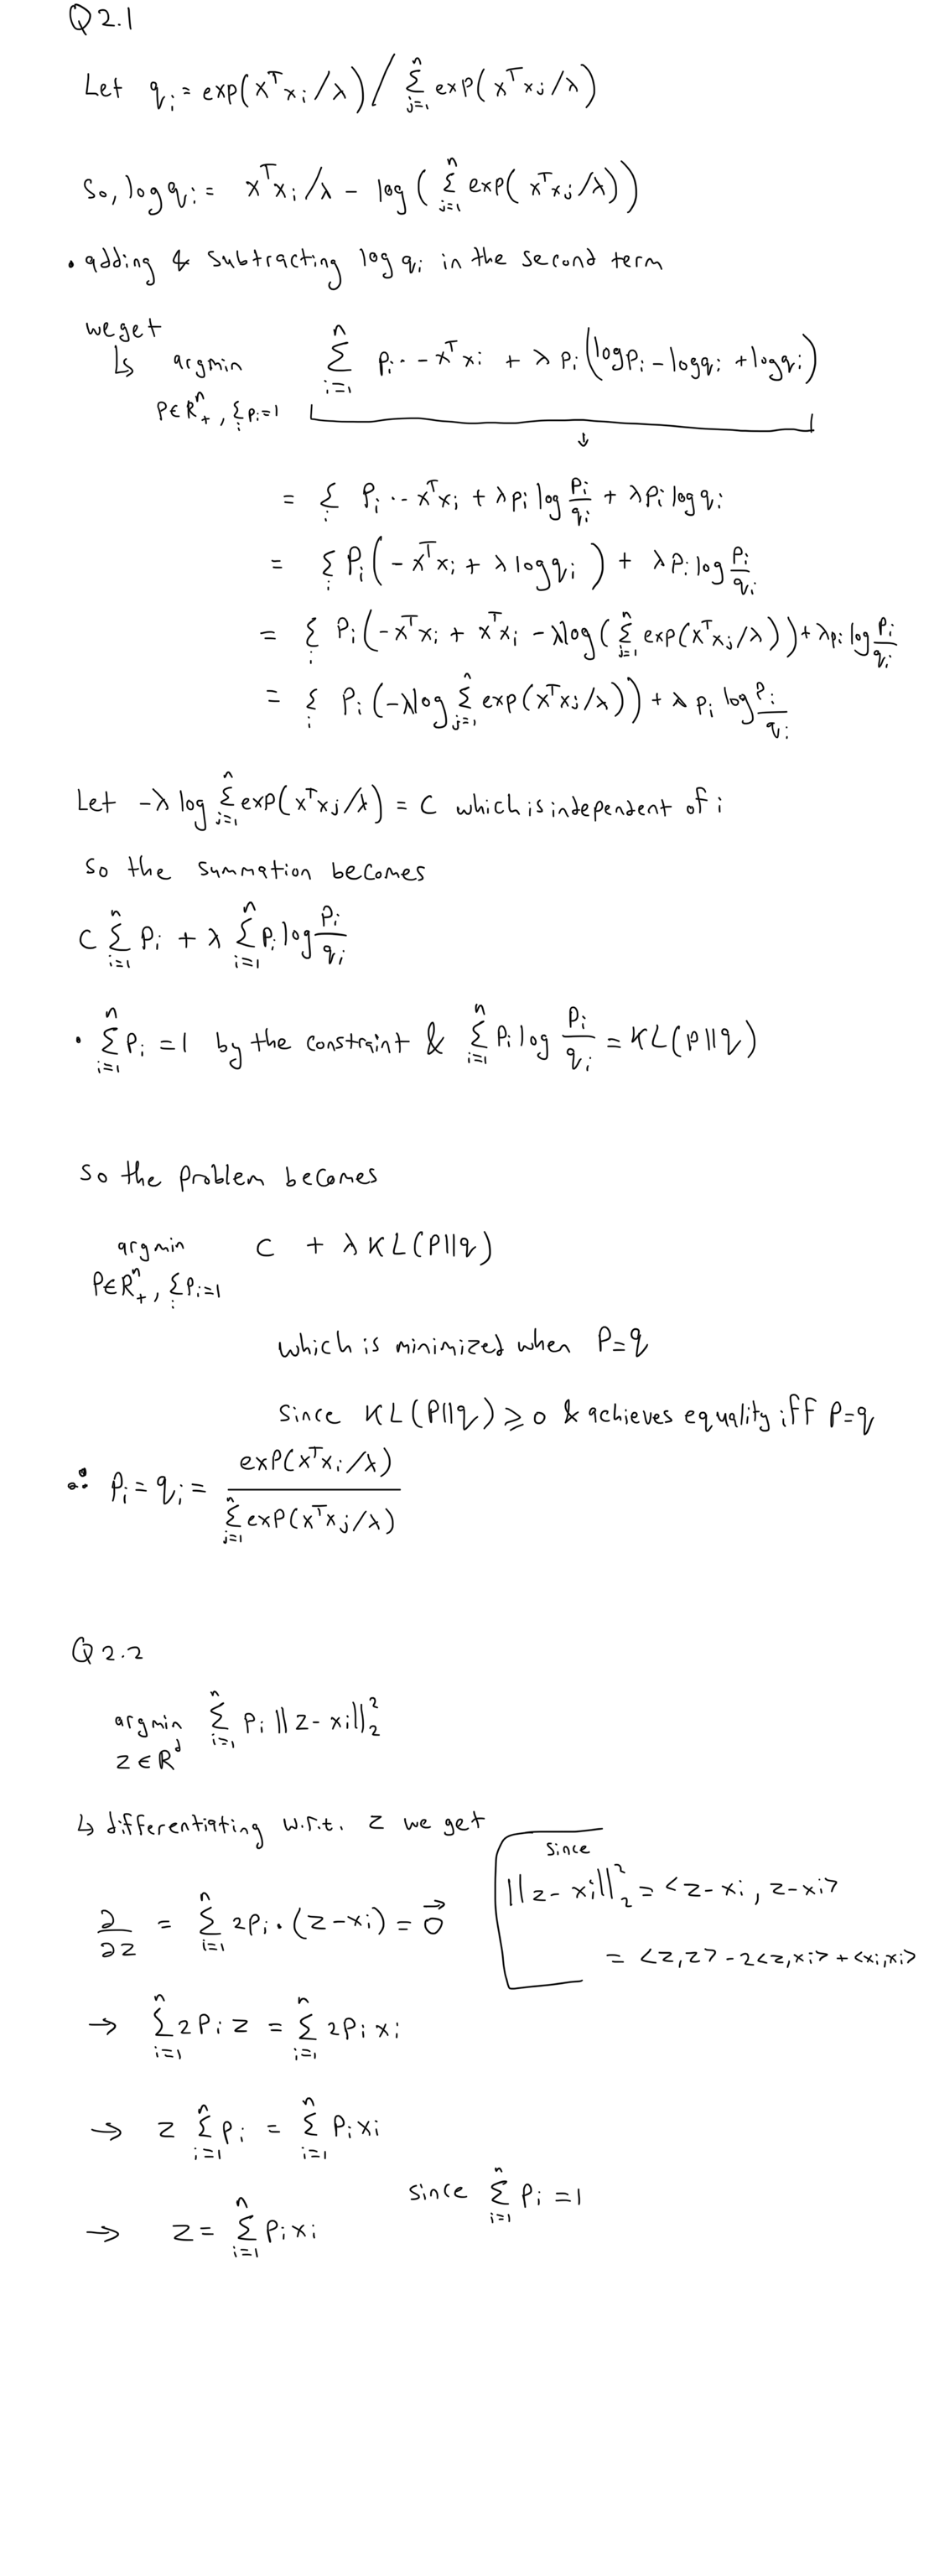 Q 2.1
Let q_i = exp(x^T x_i / λ) / Σ_{j=1}^{n} exp(x^T x_j / λ)
So, log q_i = x^T x_i / λ - log ( Σ_{j=1}^{n} exp( x^T x_j / λ))
• adding & subtracting log q_i in the second term
we get
↳ argmin_{P∈R^n_+, Σ_i p_i=1} Σ_{i=1}^{n} p_i · - x^T x_i + λ p_i (log p_i - log q_i + log q_i)
↓
= Σ_i P_i · - x^T x_i + λ p_i log p_i/q_i + λ p_i log q_i
= Σ_i P_i ( - x^T x_i + λ log q_i ) + λ P_i log p_i/q_i
= Σ_i P_i (-x^T x_i + x^T x_i - λ log ( Σ_{j=1}^{n} exp(x^T x_j / λ)) + λ p_i log p_i/q_i
= Σ_i P_i (-λ log Σ_{j=1}^{n} exp(x^T x_j / λ)) + λ p_i log p_i/q_i
Let -λ log Σ_{j=1}^{n} exp(x^T x_j / λ) = C which is independent of i
so the summation becomes
C Σ_{i=1}^{n} p_i + λ Σ_{i=1}^{n} p_i log p_i/q_i
• Σ_{i=1}^{n} p_i = 1 by the constraint & Σ_{i=1}^{n} P_i log p_i/q_i = KL(P||q)
so the problem becomes
argmin_{P∈R^n_+, Σ_i p_i=1} C + λ KL(P||q)
which is minimized when P=q
since KL(P||q) ≥ 0 & achieves equality iff P=q
∴ p_i = q_i = exp(x^T x_i / λ) / Σ_{j=1}^{n} exp(x^T x_j / λ)
Q 2.2
argmin_{z∈R^d} Σ_{i=1}^{n} p_i ||z - x_i||_2^2
↳ differentiating w.r.t. z we get
since
||z - x_i||_2^2 = <z - x_i , z - x_i>
= <z,z> - 2<z,x_i> + <x_i,x_i>
∂/∂z = Σ_{i=1}^{n} 2p_i · (z - x_i) = \vec{0}
→ Σ_{i=1}^{n} 2 P_i z = Σ_{i=1}^{n} 2 P_i x_i
→ z Σ_{i=1}^{n} p_i = Σ_{i=1}^{n} P_i x_i
since Σ_{i=1}^{n} P_i = 1
→ z = Σ_{i=1}^{n} p_i x_i